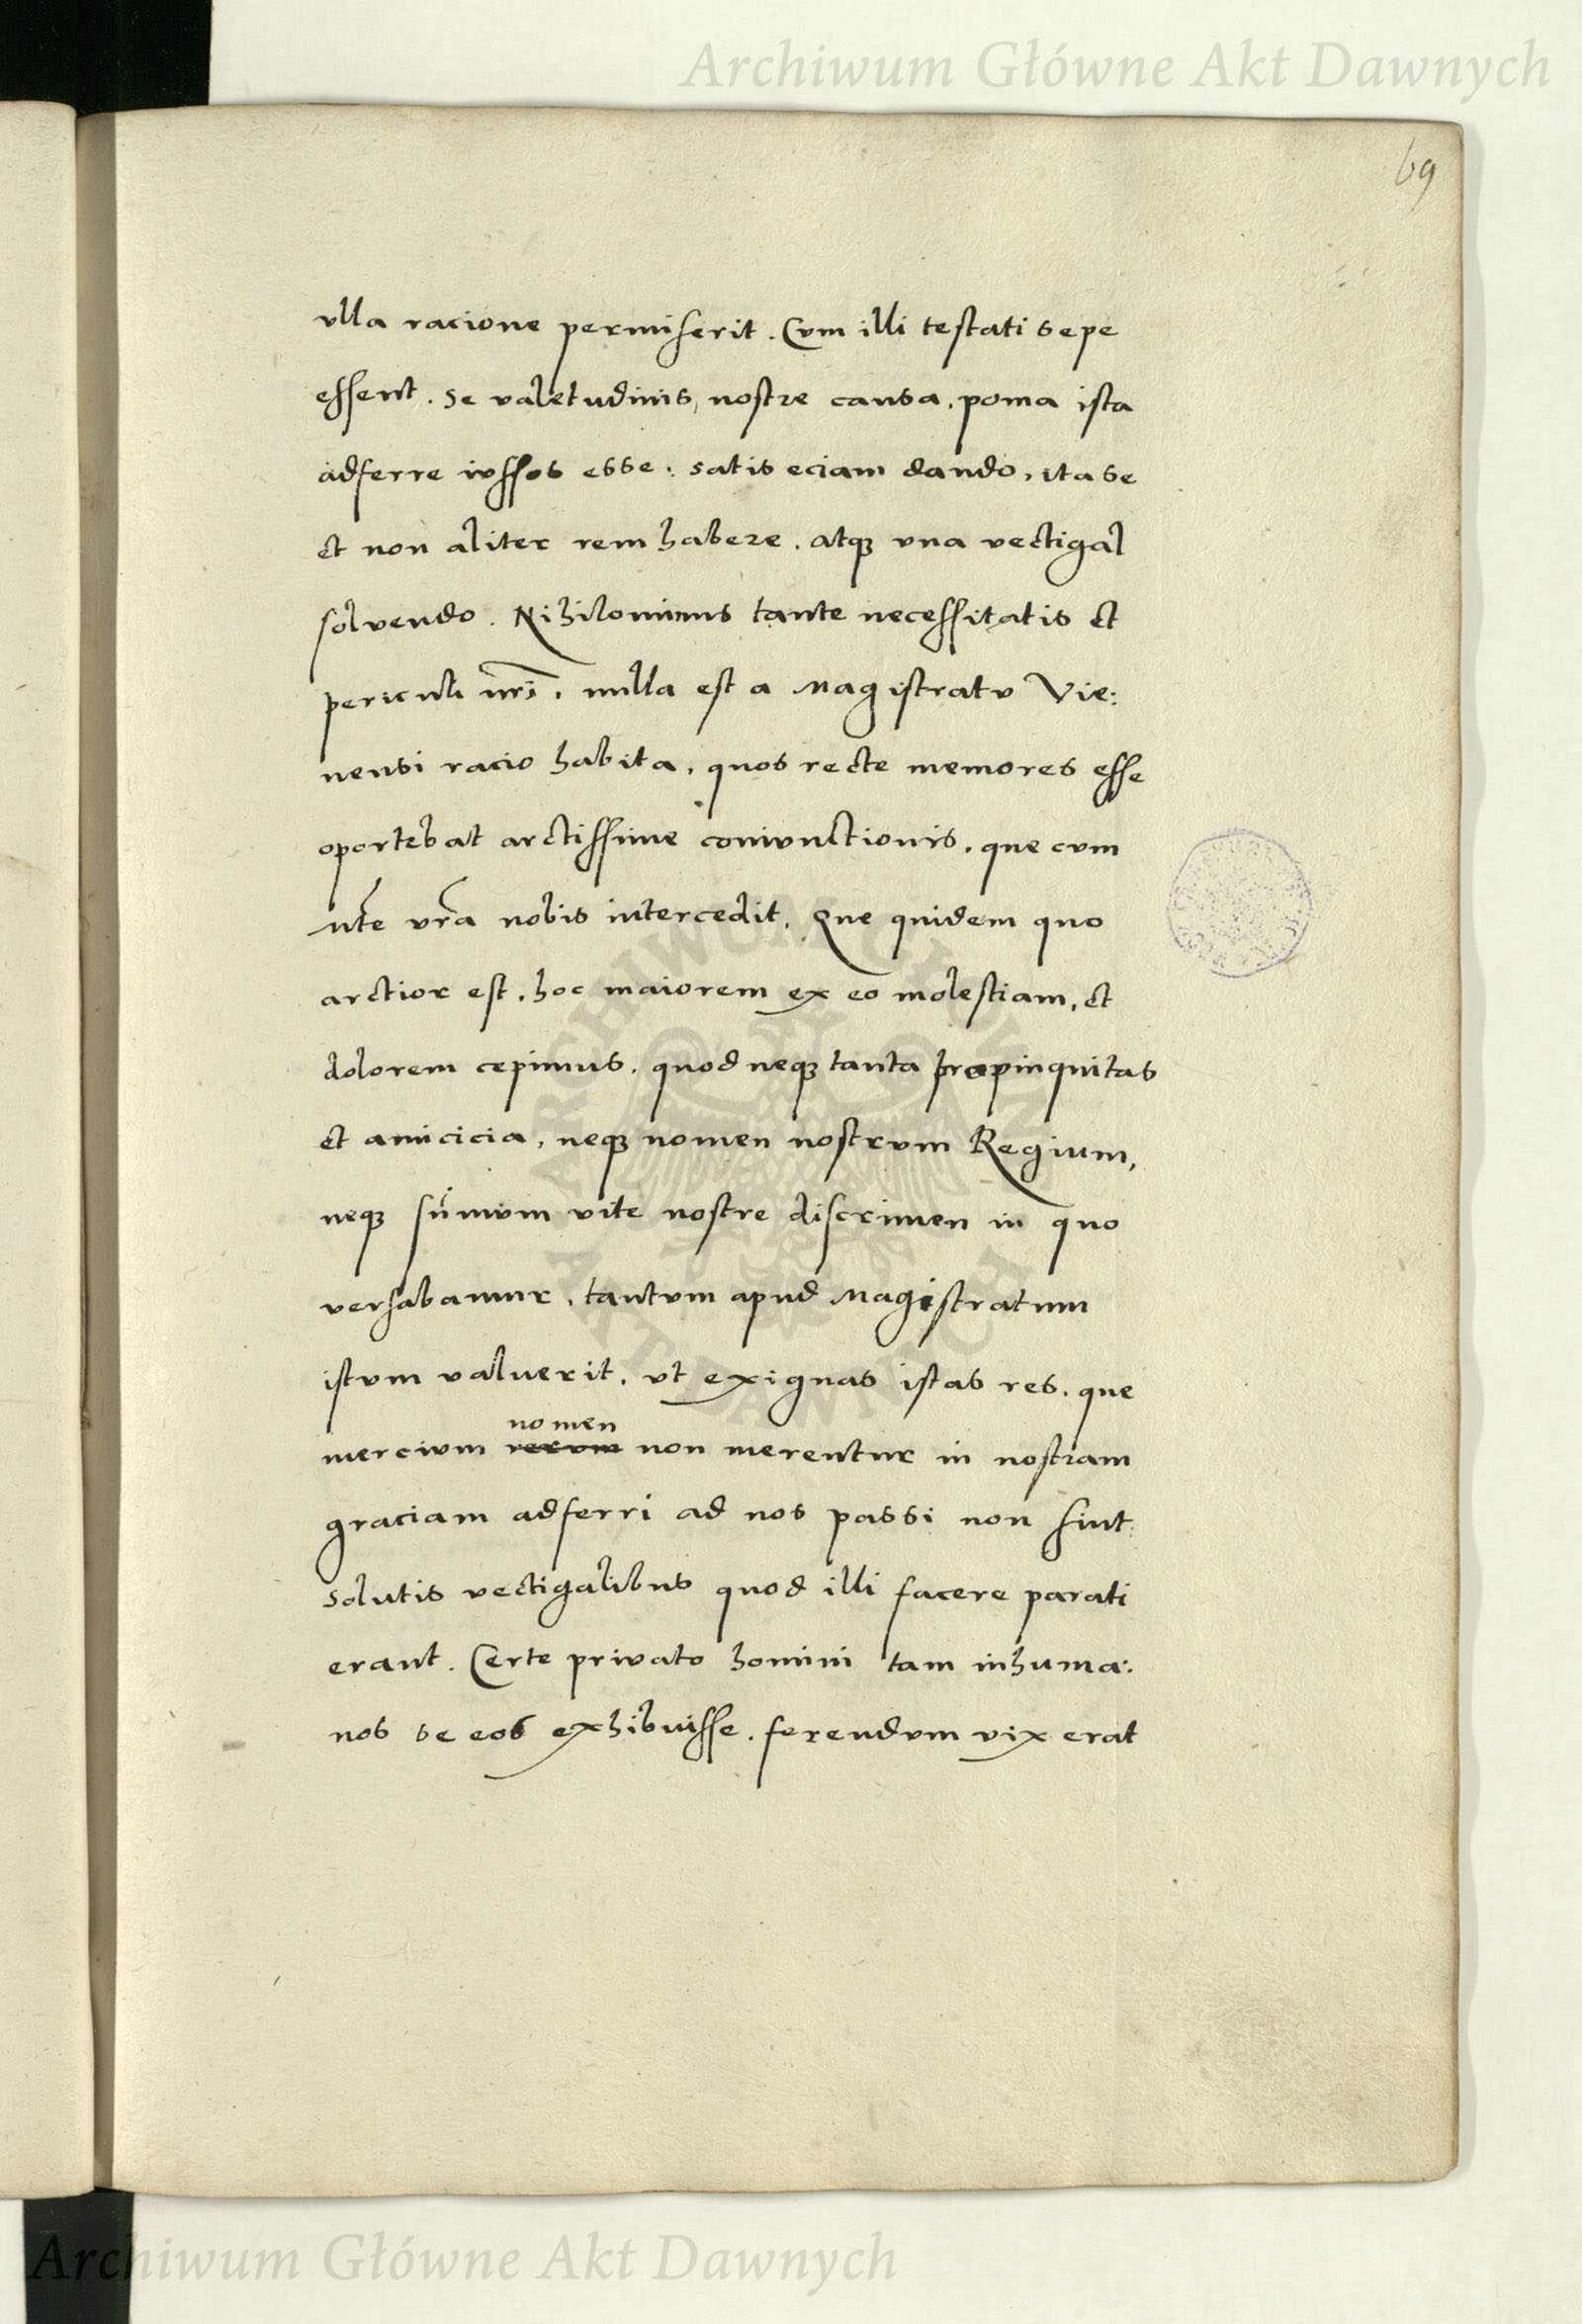 Archiwum Główne Akt Dawnych
69
vlla racione permiserit. Cvm illi testati sepe
essent. se valetudinis, nostre causa, poma ista
adferre ivssos esse. satis eciam dando, ita se
et non aliter rem habere. atqꝫ vna vectigal
solvendo. Nihilominus tante necessitatis et
periculi nr̃i. nulla est a Magistratv Vie:
nensi racio habita, quos recte memores esse
oportebat arctissime conivnctionis. que cvm
Mte vr̃a nobis intercedit. Que quidem quo
arctior est, hoc maiorem ex eo molestiam, et
dolorem cepimus. quod neqꝫ tanta propinquitas
et amicicia, neqꝫ nomen nostrvm Regium,
neqꝫ sum̃vm vite nostre discrimen in quo
versabamur, tantvm apud Magistratum
istvm valverit, vt exiguas istas res. que
nomen
mercivm rervm non merentur in nostram
graciam adferri ad nos passi non sint
solutis vectigalibus quod illi facere parati
erant. Certe privato homini tam inhuma:
nos se eos exhibvisse. ferendvm vix erat
ARCHIWUM GŁÓWNE
AKT DAWNYCH
Archiwum Główne Akt Dawnych